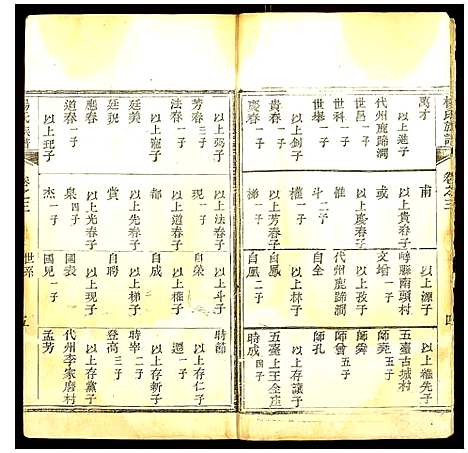 楊氏族譜
卷之三
四
萬才
以上進子
代州鹿蹄澗
世昌 一子
世科 一子
世舉
以上
貴春 一子
以上
慶春 一子
甫
以上貴春子
或
以上慶春子
孜 一子
斗 二子
林 一子
以上芳春子
梯 一子
以上源子
崞縣南頭村
文增 一子
以上孜子
代州鹿蹄澗
自全
以上林子
自鳳 二子
以上維先子
五臺古城村
師堯 五子
師舜
師曾 五子
師孔
以上存讓子
五臺上王全庄
時成 四子
芳春 三子
以上
法春 一子
以上寵子
廷美
廷貌
應春
道春 一子
以上玘子
現 一子
以上法春子
權 一子
以上道春子
賞
以上光春子
泉 一子
杰 一子
以上斗子
自榮
以上權子
自成
以上梯子
自聘
以上現子
國表
國兒 一子
時節
以上存仁子
選 一子
以上存新子
時宰 二子
登高 三子
以上存黨子
代州李家磨村
孟芳
楊氏族譜
卷之三
世系
五